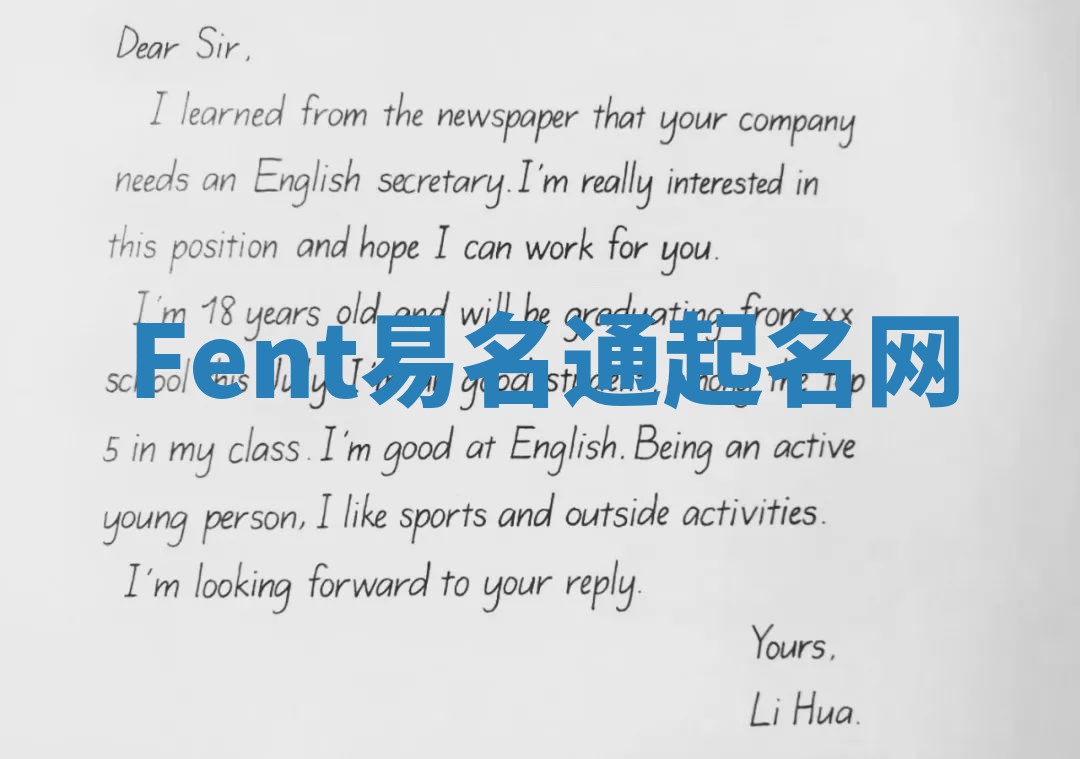 Dear Sir,
I learned from the newspaper that your company
needs an English secretary. I'm really interested in
this position and hope I can work for you.
I'm 18 years old and will be graduating from xx
Fent易名通起名网
school this July. I'm a good student among the top
5 in my class. I'm good at English. Being an active
young person, I like sports and outside activities.
I'm looking forward to your reply.
Yours,
Li Hua.